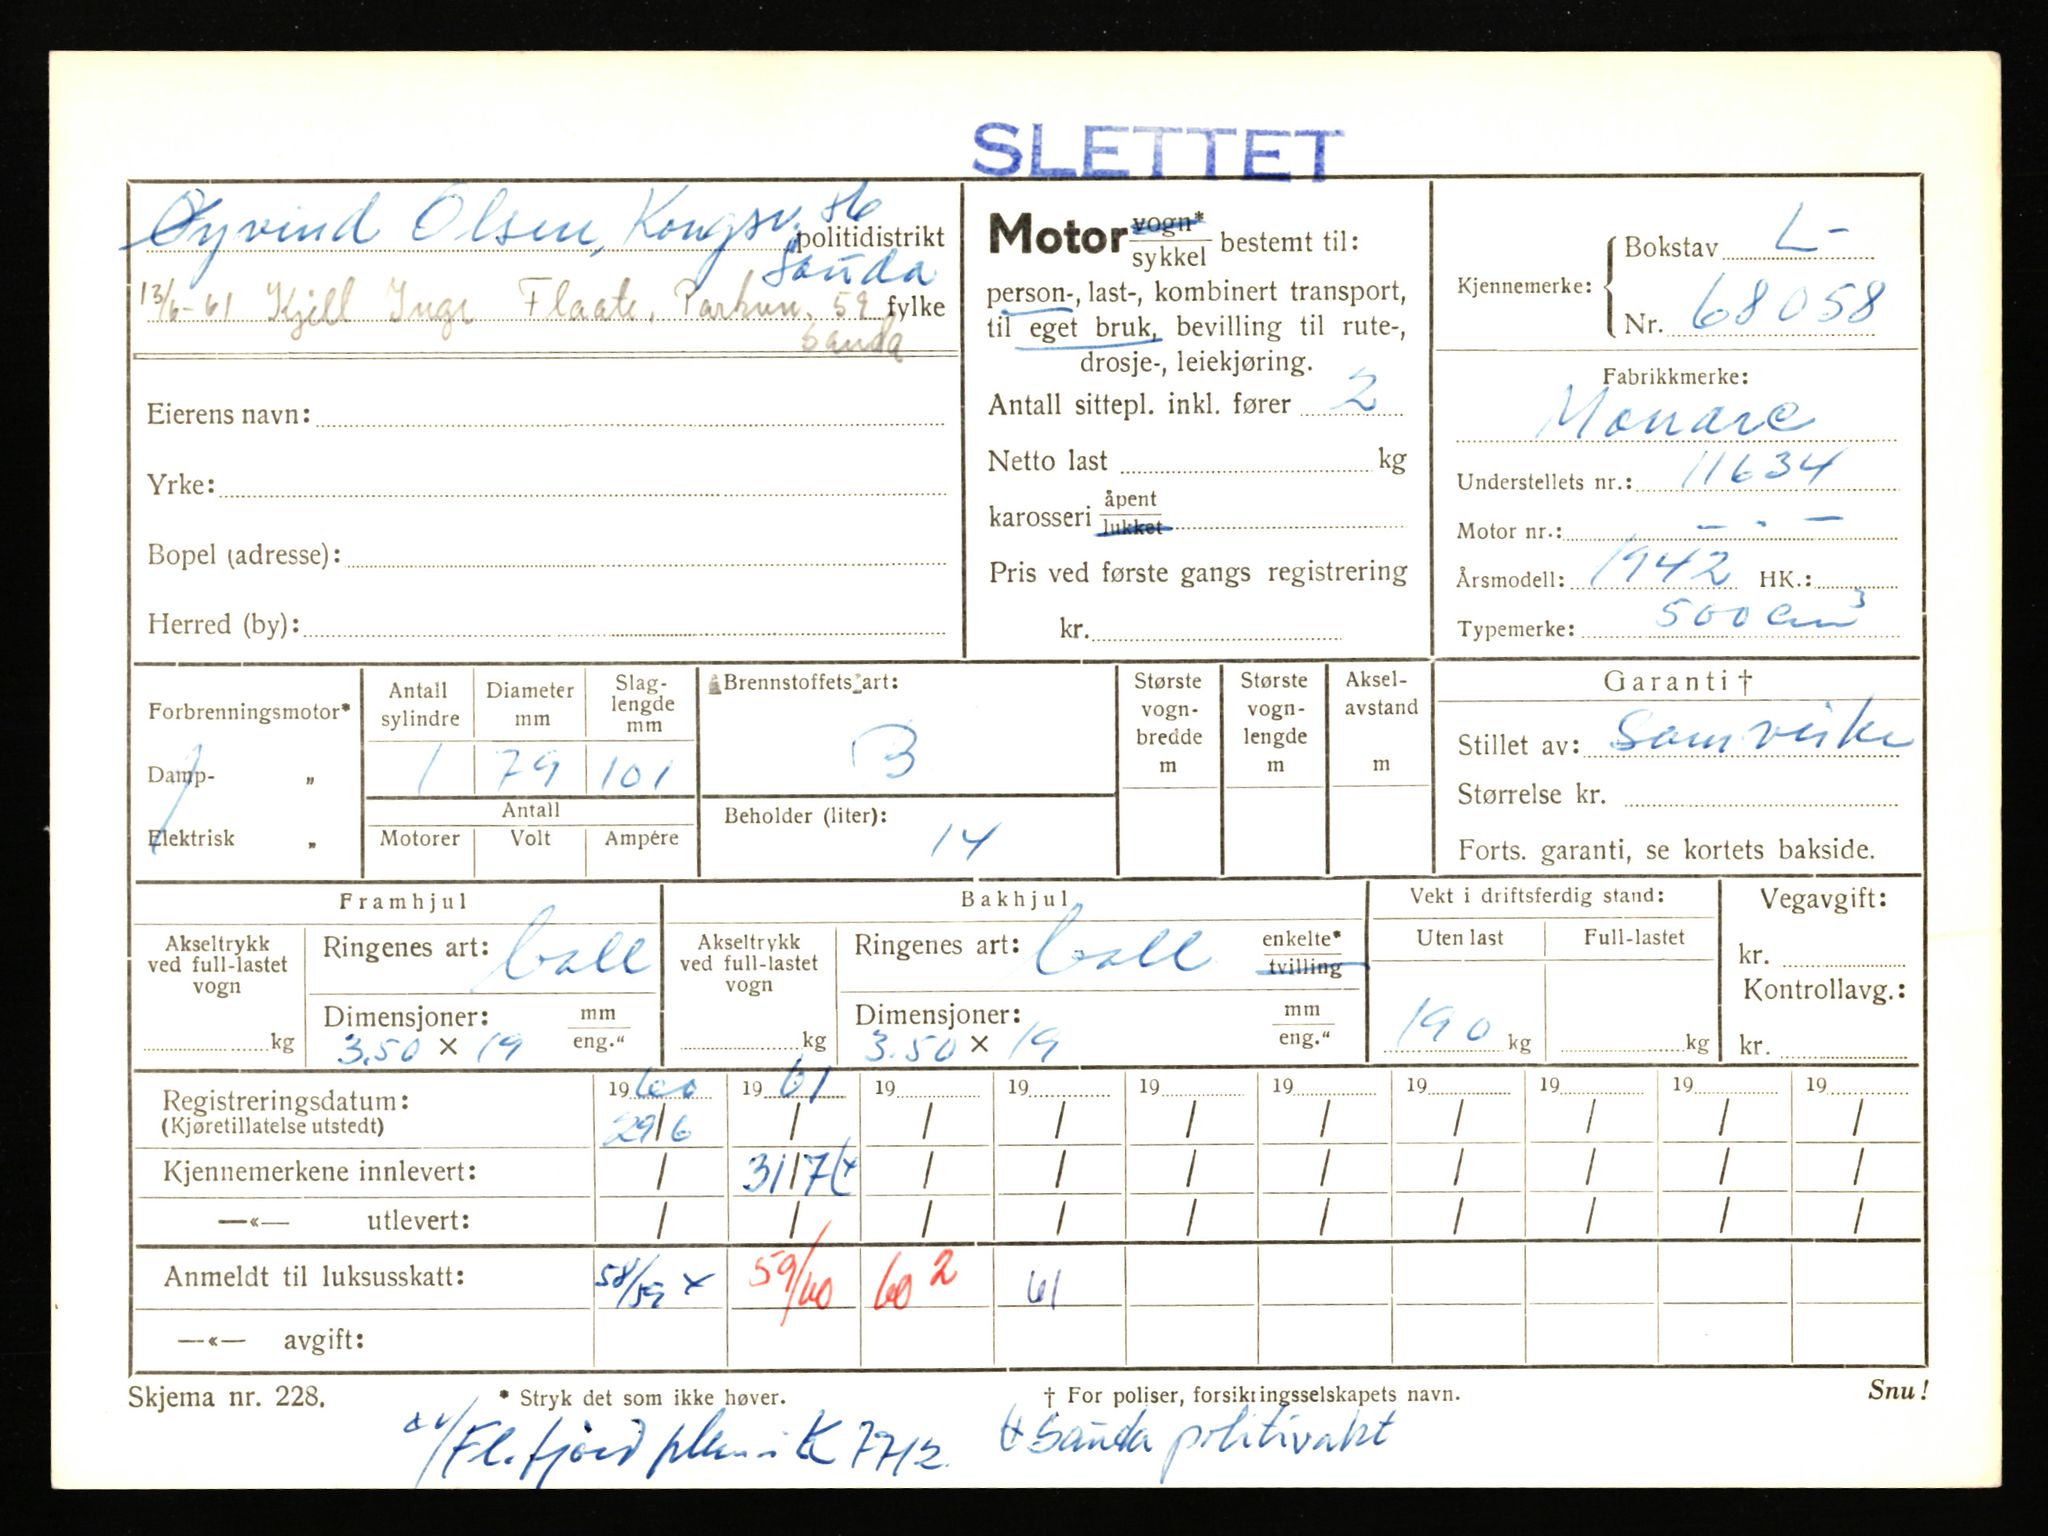 SLETTET
Øyvind Olsen, Kongsv. 86
politidistrikt
Sauda
13/6-61 Kjell Inge Flaate, Parkvn. 59 fylke
Sauda
Eierens navn:
Yrke:
Bopel (adresse):
Herred (by):
Motor vogn* / sykkel bestemt til:
person-, last-, kombinert transport,
til eget bruk, bevilling til rute-,
drosje-, leiekjøring.
Antall sittepl. inkl. fører 2
Netto last kg
karosseri åpent / lukket
Pris ved første gangs registrering
kr.
Kjennemerke: Bokstav L-
Nr. 68058
Fabrikkmerke:
Monarc
Understellets nr.: 11634
Motor nr.: - . -
Årsmodell: 1942 HK.:
Typemerke: 500 cm3
Forbrenningsmotor*
Damp- „
Elektrisk „
Antall sylindre
Diameter mm
Slag-
lengde
mm
1 79 101
Antall
Motorer Volt Ampére
Brennstoffets art:
B
Beholder (liter):
14
Største
vogn-
bredde
m
Største
vogn-
lengde
m
Aksel-
avstand
m
Garanti †
Stillet av: Samvirke
Størrelse kr.
Forts. garanti, se kortets bakside.
Framhjul
Akseltrykk
ved full-lastet
vogn
kg
Ringenes art: ball
Dimensjoner: mm
3.50 × 19 eng."
Bakhjul
Akseltrykk
ved full-lastet
vogn
kg
Ringenes art: ball enkelte*
tvilling
Dimensjoner: mm
3.50 × 19 eng."
Vekt i driftsferdig stand:
Uten last Full-lastet
190 kg kg
Vegavgift:
kr.
Kontrollavg.:
kr.
Registreringsdatum: 1960 1961 19 19 19 19 19 19 19 19
(Kjøretillatelse utstedt) 29/6 / / / / / / / / /
Kjennemerkene innlevert: / 31/7 / / / / / / / /
—«— utlevert: / / / / / / / / / /
Anmeldt til luksusskatt: 58/59 x 59/60 60 2 61
—«— avgift:
Skjema nr. 228. * Stryk det som ikke høver. † For poliser, forsikringsselskapets navn. Snu!
Fl.fjord K 7712 Sauda politivakt